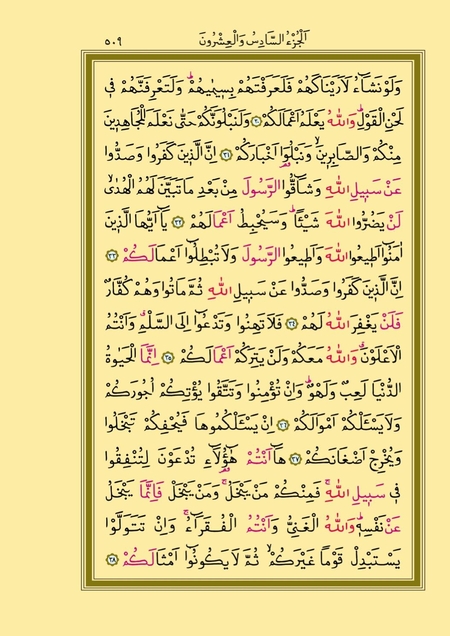 اَلْجُزْءُ السَّادِسُ وَالْعِشْرُونَ ٥٠٩
وَلَوْ نَشَٓاءُ لَاَرَيْنَاكَهُمْ فَلَعَرَفْتَهُمْ بِسِيمٰيهُمْۜ وَلَتَعْرِفَنَّهُمْ ف۪ي
لَحْنِ الْقَوْلِۜ وَاللّٰهُ يَعْلَمُ اَعْمَالَكُمْ ﴿٣٠﴾ وَلَنَبْلُوَنَّكُمْ حَتّٰى نَعْلَمَ الْمُجَاهِد۪ينَ
مِنْكُمْ وَالصَّابِر۪ينَۙ وَنَبْلُوَ۬ا اَخْبَارَكُمْ ﴿٣١﴾ اِنَّ الَّذ۪ينَ كَفَرُوا وَصَدُّوا
عَنْ سَب۪يلِ اللّٰهِ وَشَٓاقُّوا الرَّسُولَ مِنْ بَعْدِ مَا تَبَيَّنَ لَهُمُ الْهُدٰىۙ
لَنْ يَضُرُّوا اللّٰهَ شَيْـًٔاۜ وَسَيُحْبِطُ اَعْمَالَهُمْ ﴿٣٢﴾ يَٓا اَيُّهَا الَّذ۪ينَ
اٰمَنُٓوا اَط۪يعُوا اللّٰهَ وَاَط۪يعُوا الرَّسُولَ وَلَا تُبْطِلُٓوا اَعْمَالَكُمْ ﴿٣٣﴾
اِنَّ الَّذ۪ينَ كَفَرُوا وَصَدُّوا عَنْ سَب۪يلِ اللّٰهِ ثُمَّ مَاتُوا وَهُمْ كُفَّارٌ
فَلَنْ يَغْفِرَ اللّٰهُ لَهُمْ ﴿٣٤﴾ فَلَا تَهِنُوا وَتَدْعُٓوا اِلَى السَّلْمِۗ وَاَنْتُمُ
الْاَعْلَوْنَۗ وَاللّٰهُ مَعَكُمْ وَلَنْ يَتِرَكُمْ اَعْمَالَكُمْ ﴿٣٥﴾ اِنَّمَا الْحَيٰوةُ
الدُّنْيَا لَعِبٌ وَلَهْوٌۜ وَاِنْ تُؤْمِنُوا وَتَتَّقُوا يُؤْتِكُمْ اُجُورَكُمْ
وَلَا يَسْـَٔلْكُمْ اَمْوَالَكُمْ ﴿٣٦﴾ اِنْ يَسْـَٔلْكُمُوهَا فَيُحْفِكُمْ تَبْخَلُوا
وَيُخْرِجْ اَضْغَانَكُمْ ﴿٣٧﴾ هَٓا اَنْتُمْ هٰٓؤُ۬لَٓاءِ تُدْعَوْنَ لِتُنْفِقُوا
ف۪ي سَب۪يلِ اللّٰهِۚ فَمِنْكُمْ مَنْ يَبْخَلُۚ وَمَنْ يَبْخَلْ فَاِنَّمَا يَبْخَلُ
عَنْ نَفْسِه۪ۜ وَاللّٰهُ الْغَنِيُّ وَاَنْتُمُ الْفُقَرَٓاءُۚ وَاِنْ تَتَوَلَّوْا
يَسْتَبْدِلْ قَوْمًا غَيْرَكُمْۙ ثُمَّ لَا يَكُونُٓوا اَمْثَالَكُمْ ﴿٣٨﴾